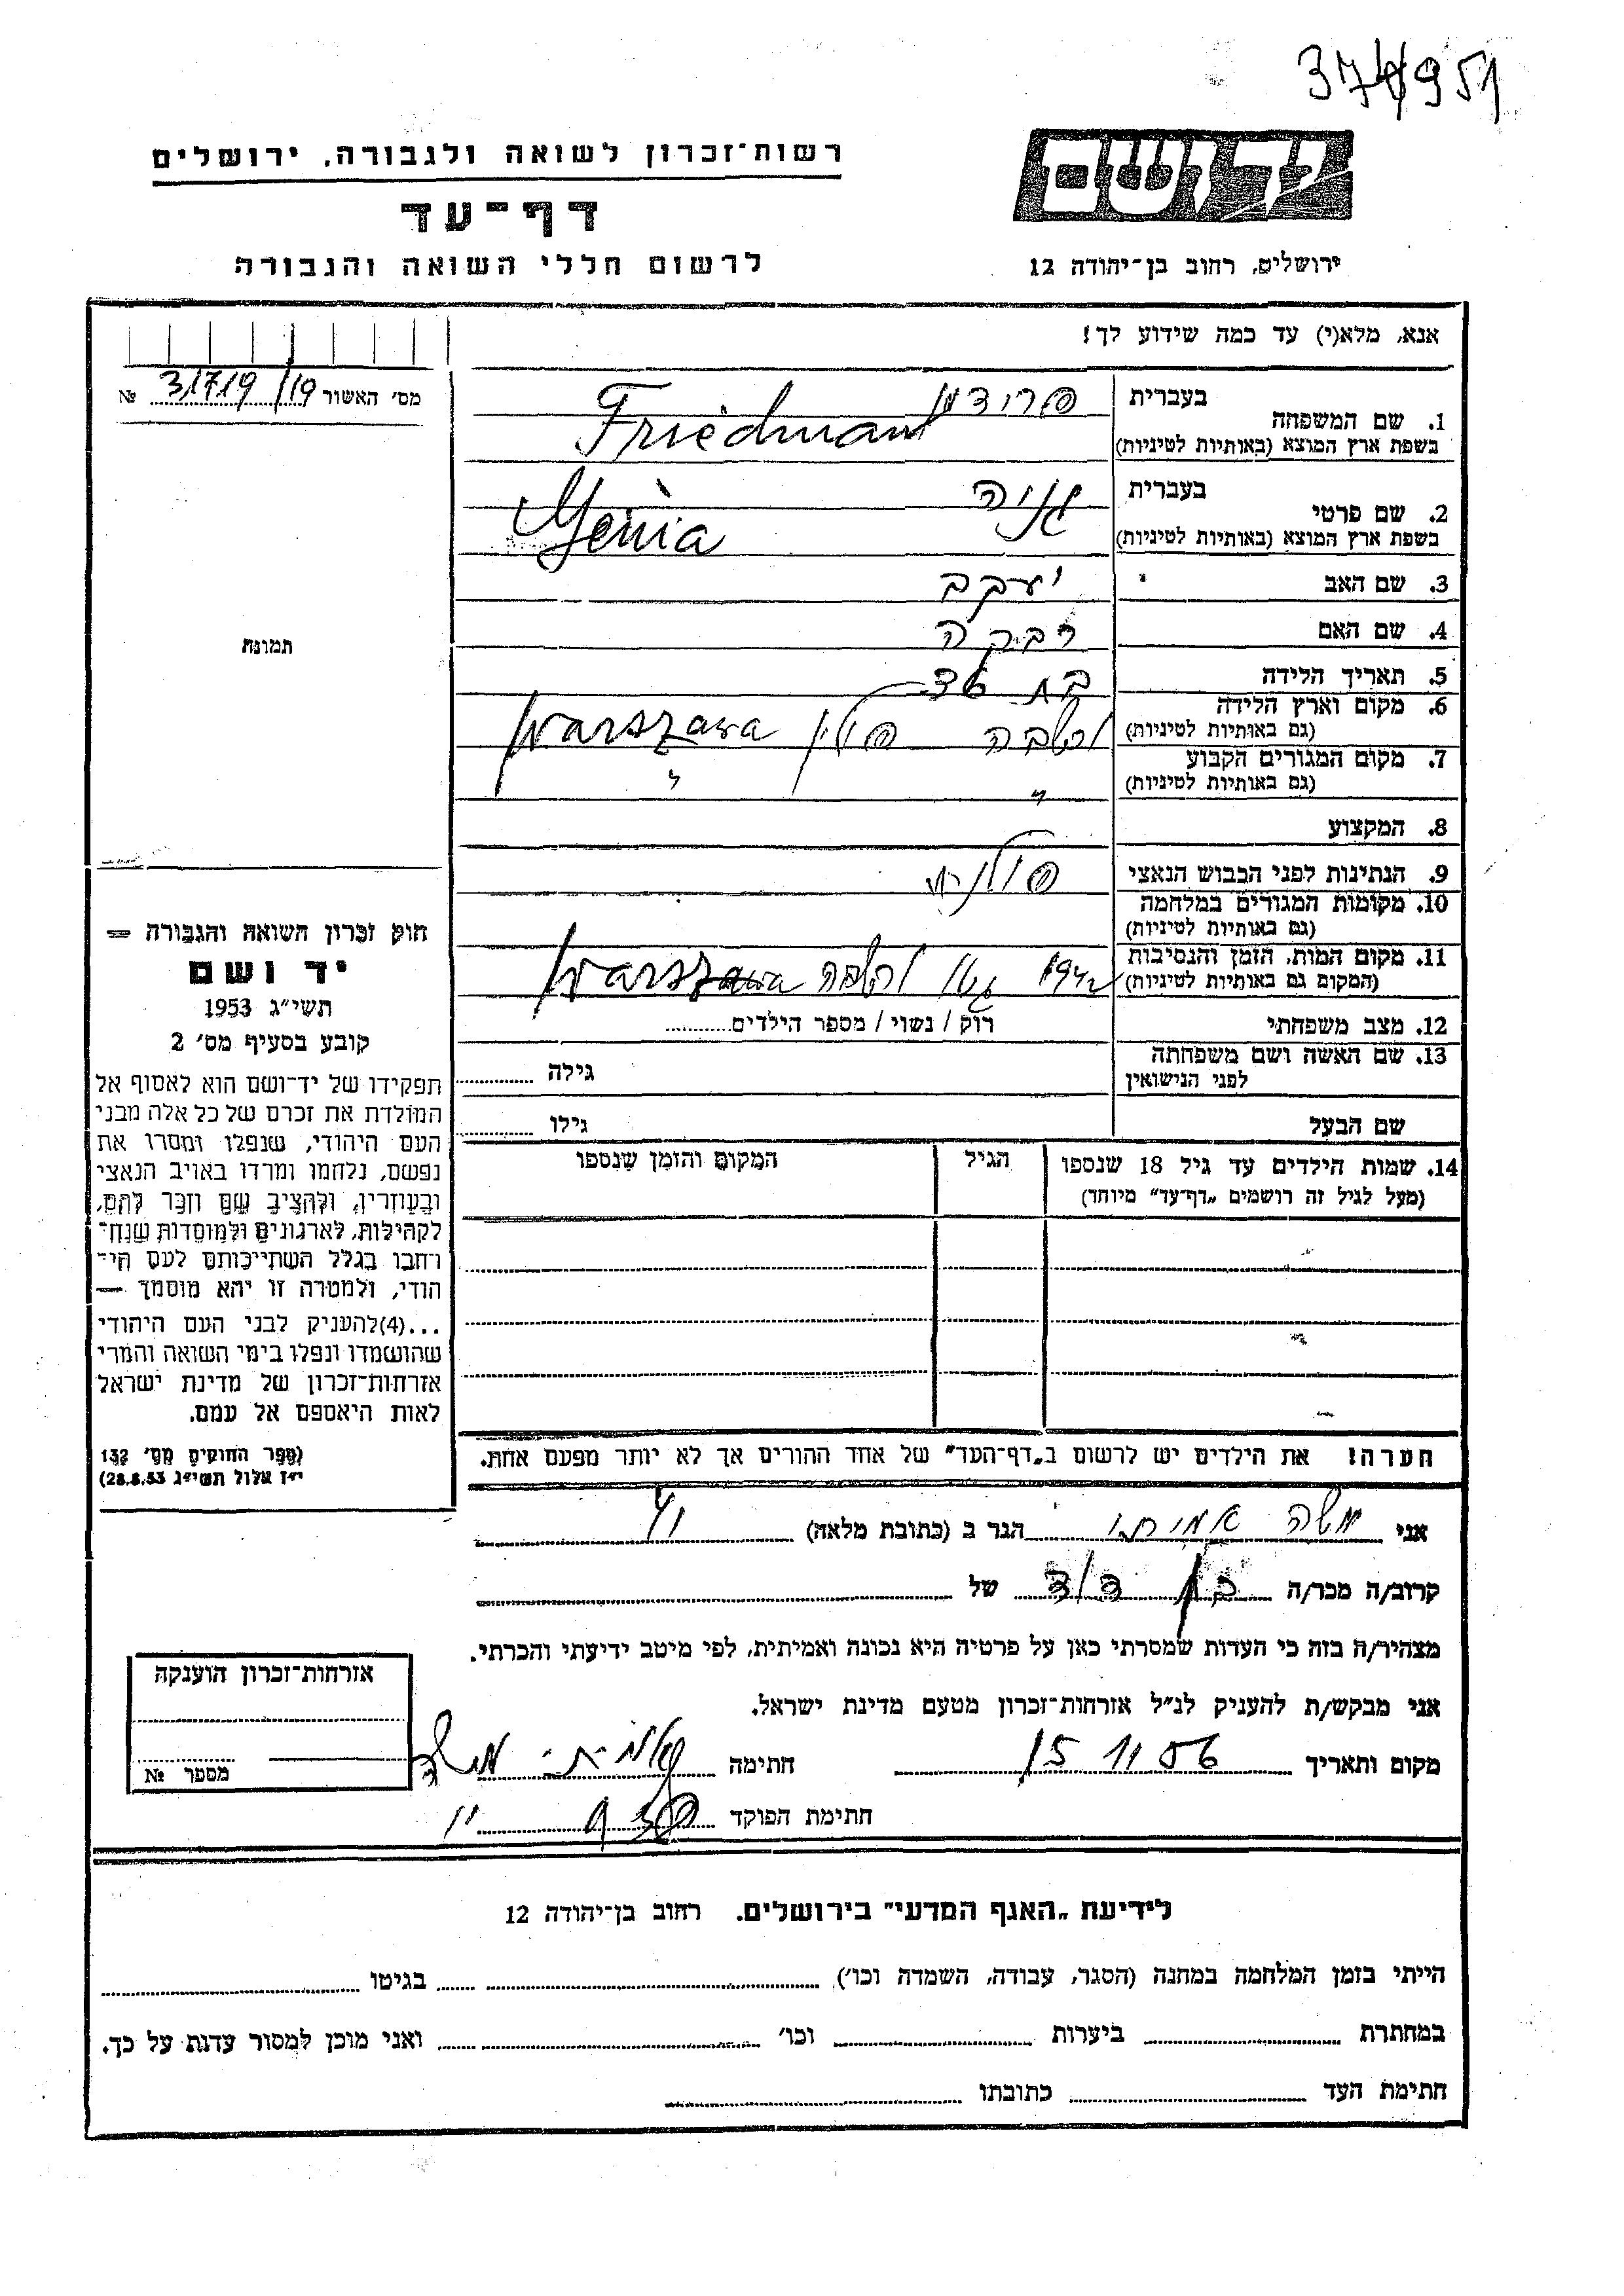 374951
רשות־זכרון לשואה ולגבורה, ירושלים
יד ושם
דף־עד
לרשום חללי השואה והגבורה
ירושלים, רחוב בן־יהודה 12
אנא, מלא(י) עד כמה שידוע לך!
מס׳ האשור 31719/19 №
1. שם המשפחה בעברית פרידמן
בשפת ארץ המוצא (באותיות לטיניות) Friedman
2. שם פרטי בעברית גניה
בשפת ארץ המוצא (באותיות לטיניות) Genia
3. שם האב יעקב
4. שם האם רבקה
תמונה
5. תאריך הלידה בת
6. מקום וארץ הלידה (גם באותיות לטיניות) ורשבה פולין Warszawa
7. מקום המגורים הקבוע (גם באותיות לטיניות) " "
8. המקצוע
9. הנתינות לפני הכבוש הנאצי פולנית
10. מקומות המגורים במלחמה (גם באותיות לטיניות)
11. מקום המות, הזמן והנסיבות (המקום גם באותיות לטיניות) 1942 גטו ורשבה Warszawa
12. מצב משפחתי רוק / נשוי / מספר הילדים
13. שם האשה ושם משפחתה לפני הנישואין גילה
שם הבעל גילו
14. שמות הילדים עד גיל 18 שנספו הגיל המקום והזמן שנספו
(מעל לגיל זה רושמים „דף־עד" מיוחד)
חוק זכרון השואה והגבורה —
יד ושם
תשי״ג 1953
קובע בסעיף מס׳ 2
תפקידו של יד־ושם הוא לאסוף אל
המולדת את זכרם של כל אלה מבני
העם היהודי, שנפלו ומסרו את
נפשם, נלחמו ומרדו באויב הנאצי
ובעוזריו, ולהציב שם וזכר להם,
לקהילות, לארגונים ולמוסדות שנח־
רחבו בגלל השתייכותם לעם הי־
הודי, ולמטרה זו יהא מוסמך —
...(4)להעניק לבני העם היהודי
שהושמדו ונפלו בימי השואה והמרי
אזרחות־זכרון של מדינת ישראל
לאות היאספם אל עמם.
(ספר החוקים מס׳ 132
י״ז אלול תשי״ג 28.8.53)
הערה! את הילדים יש לרשום ב„דף־העד" של אחד ההורים אך לא יותר מפעם אחת.
אני משה אמיתי הגר ב (כתובת מלאה)
קרוב/ה מכר/ה בן דוד של
מצהיר/ה בזה כי העדות שמסרתי כאן על פרטיה היא נכונה ואמיתית, לפי מיטב ידיעתי והכרתי.
אני מבקש/ת להעניק לנ״ל אזרחות־זכרון מטעם מדינת ישראל.
מקום ותאריך 15 11 56 חתימה אמיתי משה
חתימת הפוקד
אזרחות־זכרון הוענקה
מספר №
לידיעת „האגף המדעי" בירושלים. רחוב בן־יהודה 12
הייתי בזמן המלחמה במחנה (הסגר, עבודה, השמדה וכו׳) בגיטו
במחתרת ביערות וכו׳ ואני מוכן למסור עדות על כך.
חתימת העד כתובתו